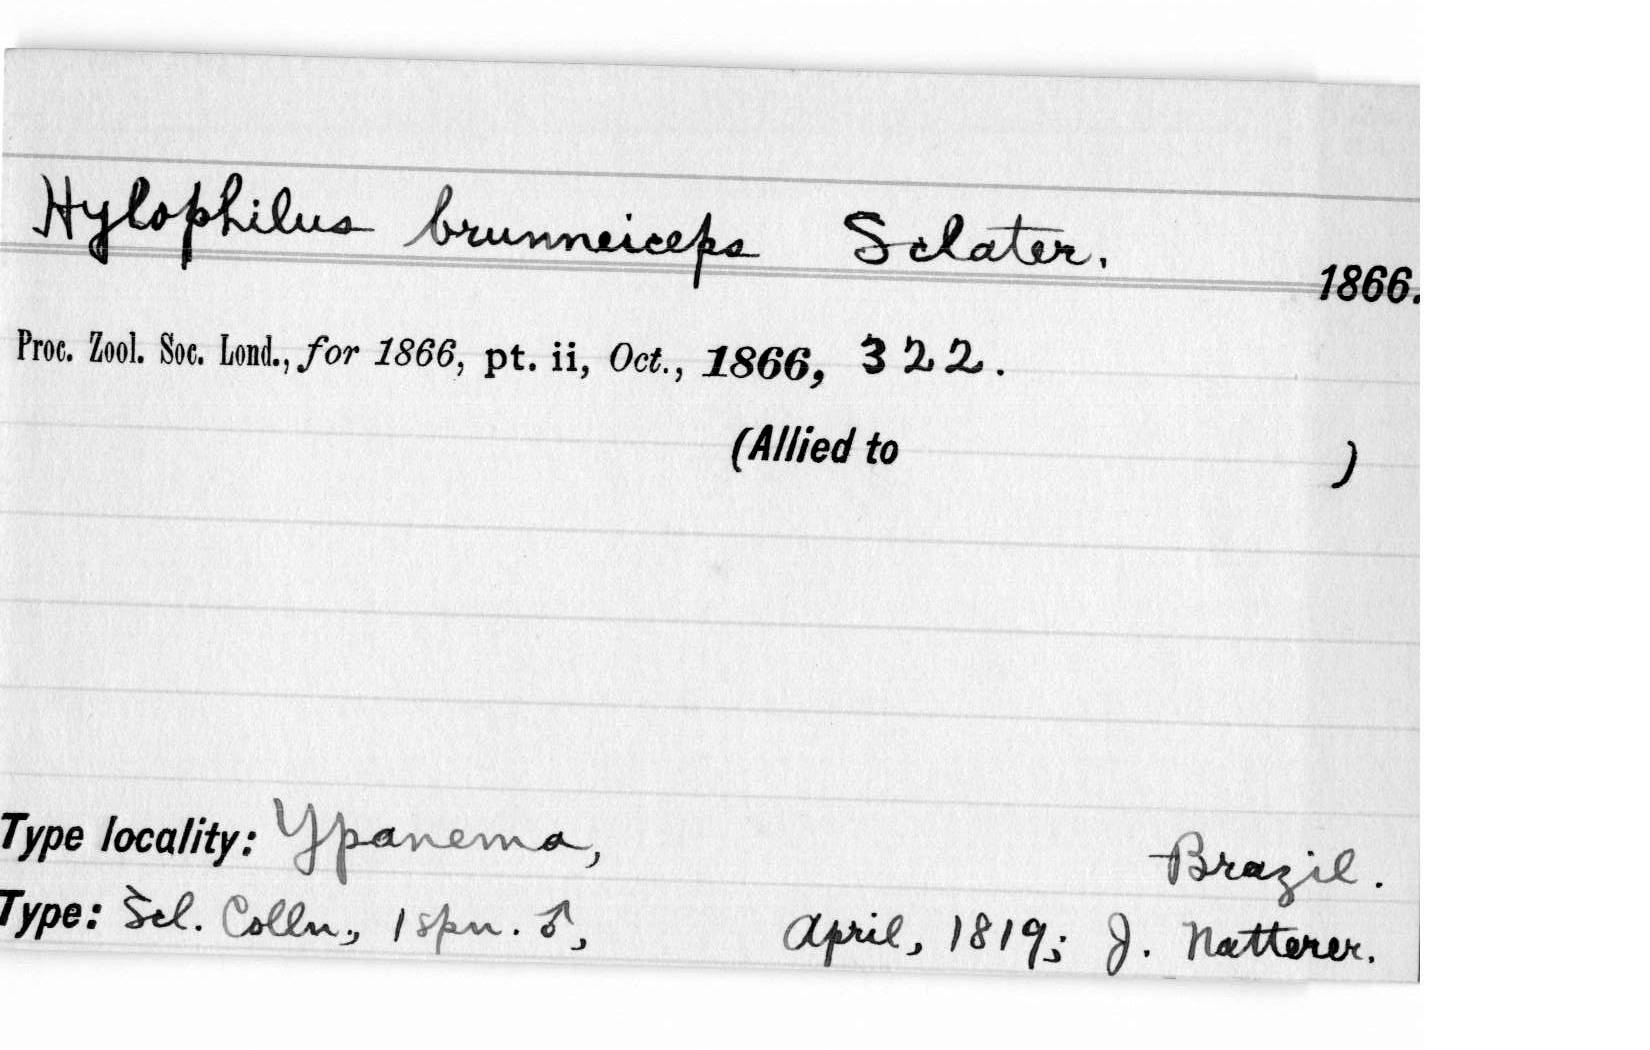 Hylophilus brunneiceps Sclater. 1866.
Proc. Zool. Soc. Lond., for 1866, pt. ii, Oct., 1866, 322.
(Allied to )
Type locality: Ypanema, Brazil.
Type: Scl. Colln., 1 spn. ♂, April, 1819; J. Natterer.